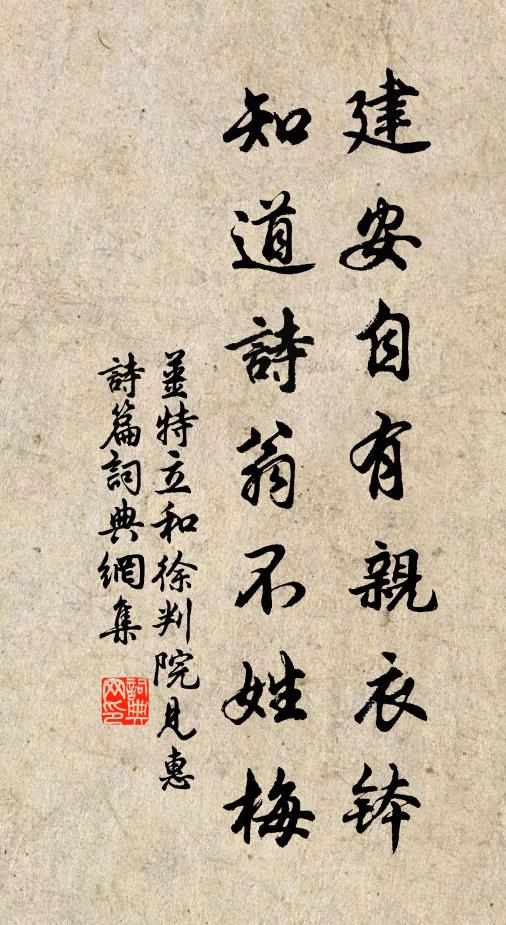 建安自有親衣鉢
知道詩翁不姓梅
姜特立和徐判院見惠
詩篇詞典網集
詞典網印